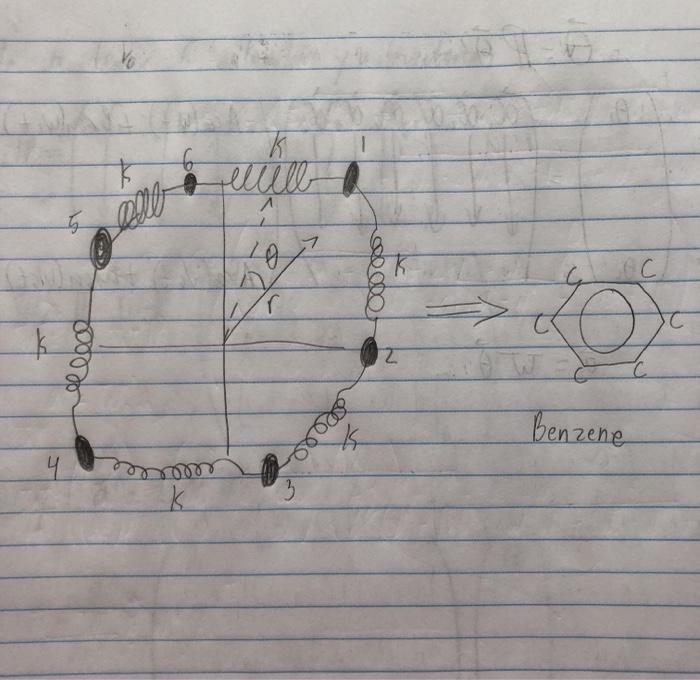 1
K
6
K
5
θ
K
r
K
2
K
3
4
K
C
C
C
C
C
C
Benzene